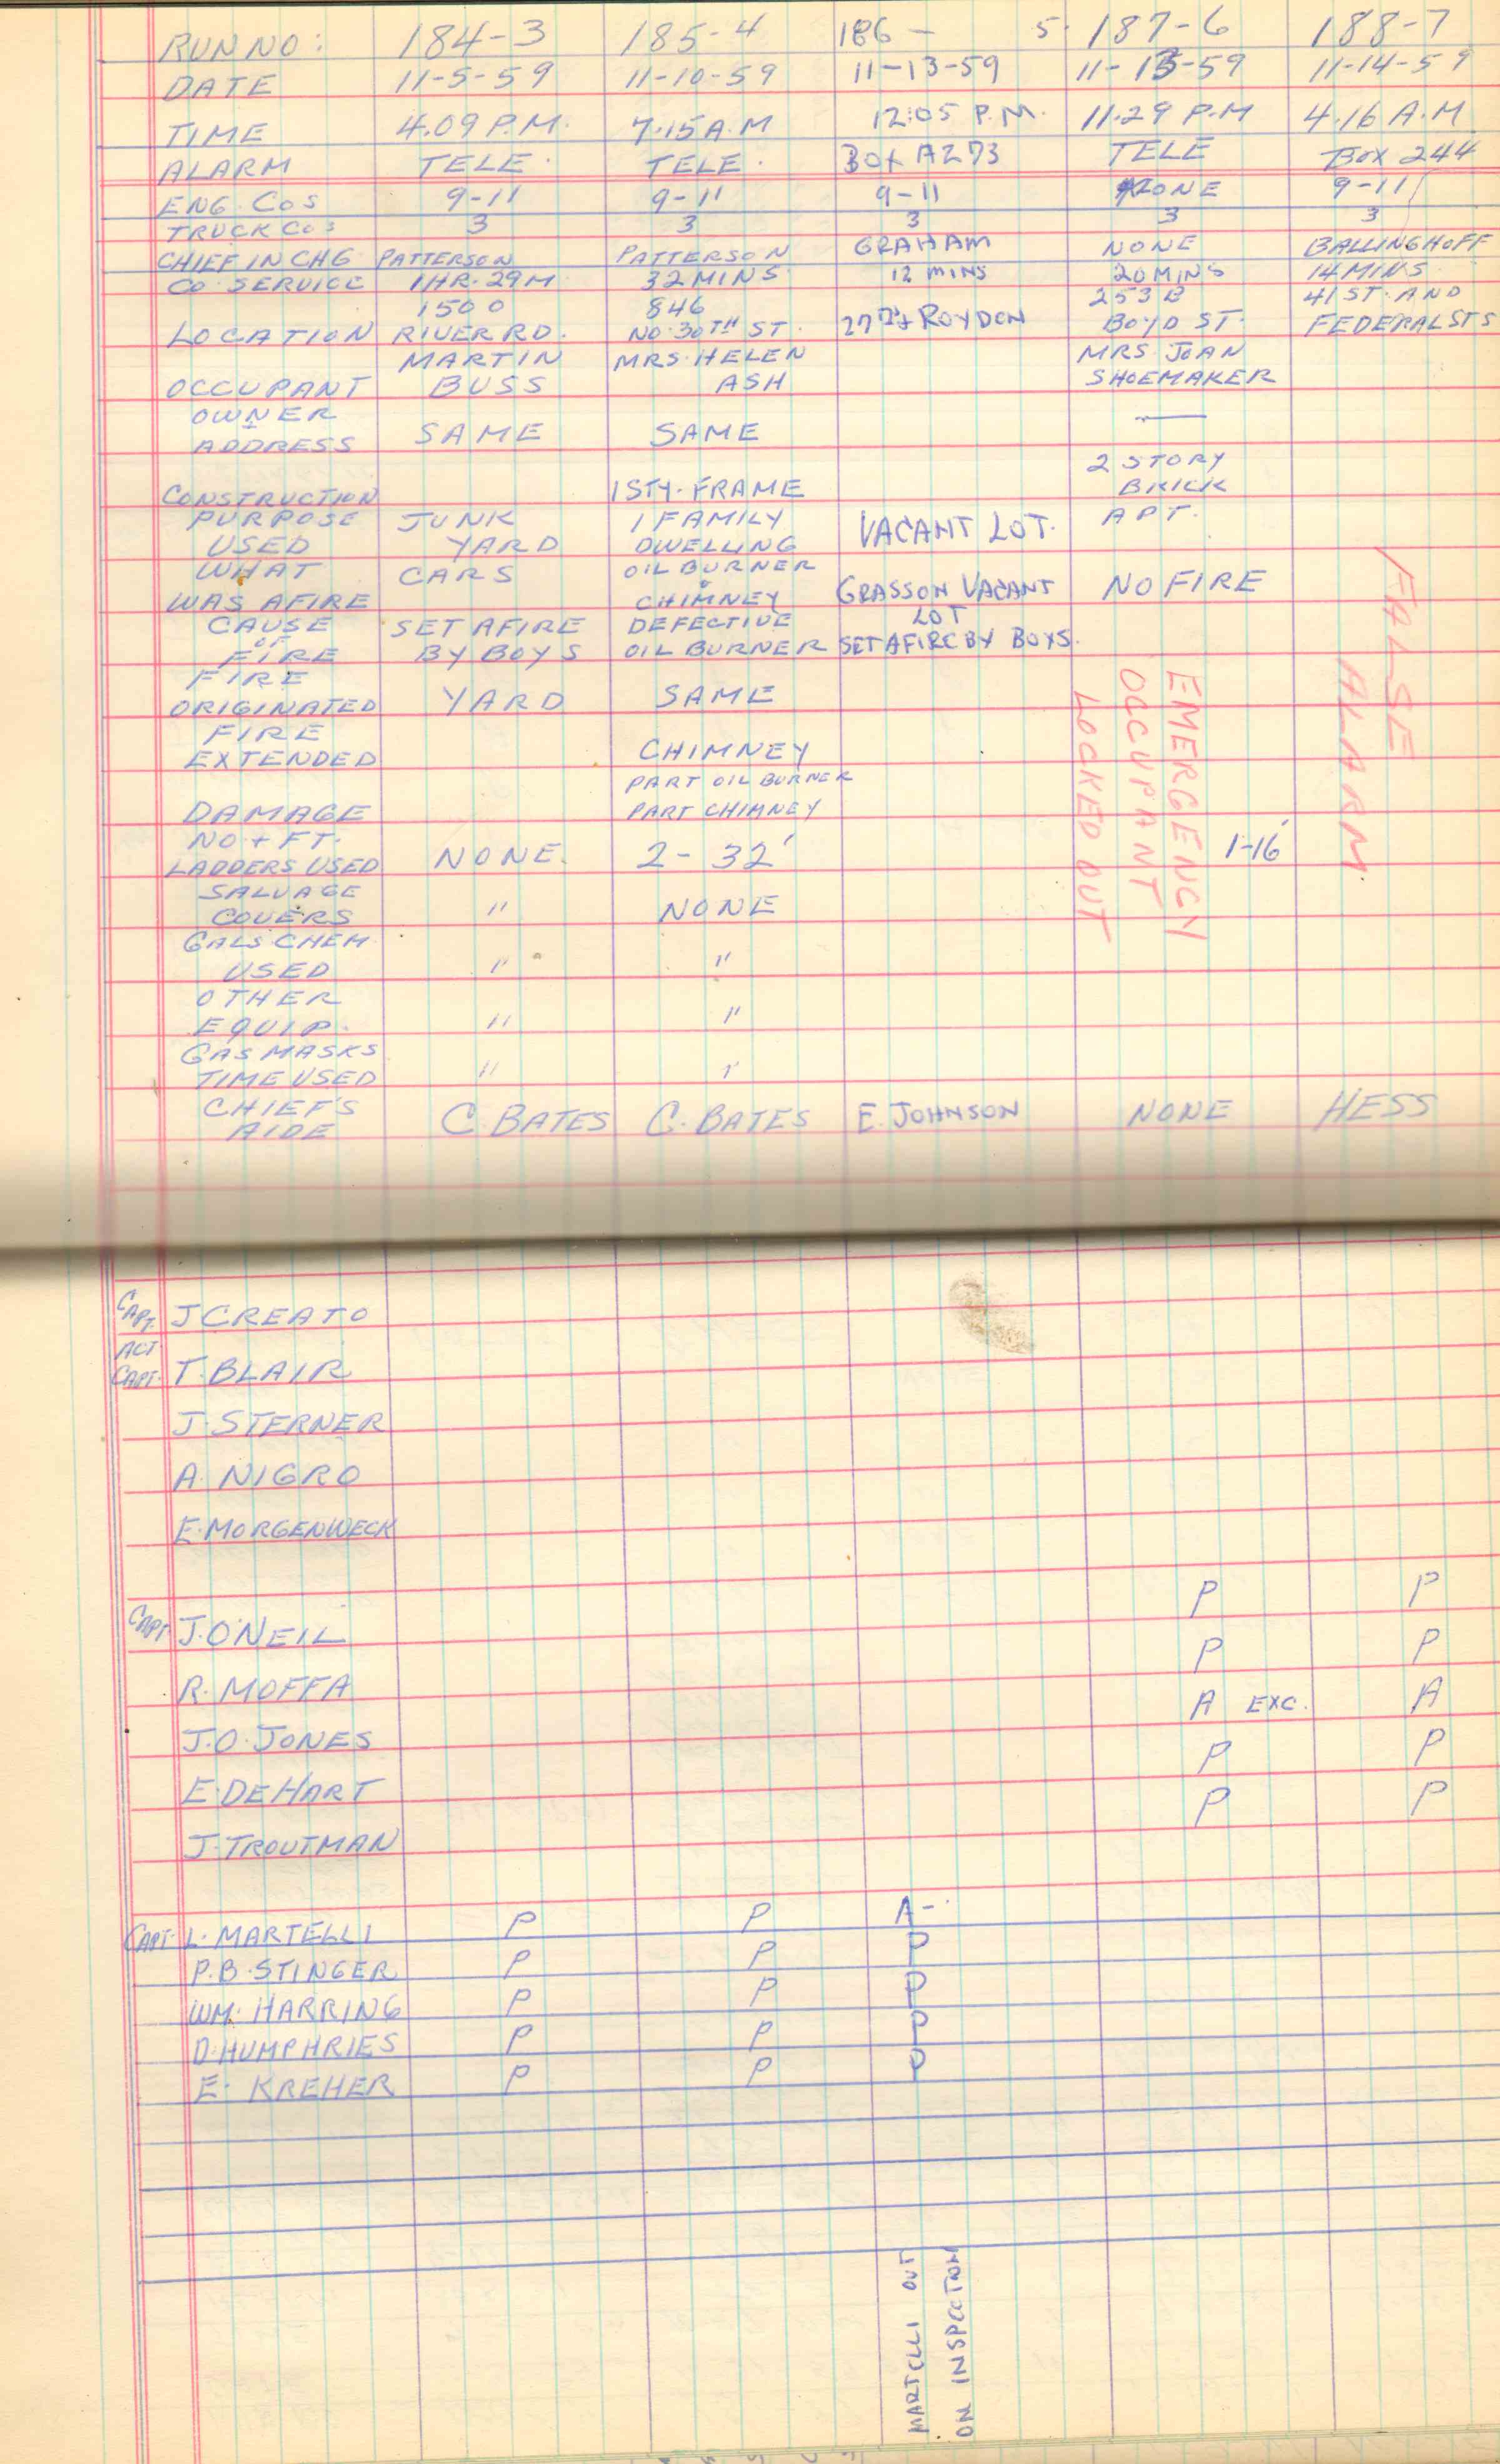 RUN NO: 184-3 185-4 186 - 5. 187-6 188-7
DATE 11-5-59 11-10-59 11-13-59 11-13-59 11-14-59
TIME 4.09 P.M. 7.15 A.M 12:05 P.M. 11.29 P.M 4.16 A.M
ALARM TELE. TELE. BOX A273 TELE BOX 244
ENG. COS 9-11 9-11 9-11 NONE 9-11
TRUCK COS 3 3 3 3 3
CHIEF IN CHG PATTERSON PATTERSON GRAHAM NONE BALLINGHOFF
CO SERVICE 1 HR. 29 M 32 MINS 12 MINS 20 MINS 14 MINS.
1500 846 253 B 41 ST. AND
LOCATION RIVER RD. NO. 30TH ST. 27TH + ROYDEN BOYD ST. FEDERAL STS
MARTIN MRS. HELEN MRS. JOAN
OCCUPANT BUSS ASH SHOEMAKER
OWNER —
ADDRESS SAME SAME
2 STORY
CONSTRUCTION 1 STY. FRAME BRICK
PURPOSE JUNK 1 FAMILY VACANT LOT. APT.
USED YARD DWELLING
WHAT CARS OIL BURNER GRASS ON VACANT NO FIRE
WAS AFIRE & CHIMNEY LOT
CAUSE SET AFIRE DEFECTIVE
OF
FIRE BY BOYS OIL BURNER SET AFIRE BY BOYS.
FIRE
ORIGINATED YARD SAME
FIRE
EXTENDED CHIMNEY
PART OIL BURNER
DAMAGE PART CHIMNEY
NO + FT.
LADDERS USED NONE. 2- 32' 1-16'
SALVAGE
COVERS " NONE
GALS CHEM
USED " "
OTHER
EQUIP. " "
GAS MASKS
TIME USED " "
CHIEF'S
AIDE C. BATES C. BATES E. JOHNSON NONE HESS
EMERGENCY
OCCUPANT
LOCKED OUT
FALSE
ALARM
CAPT. J CREATO
ACT
CAPT. T. BLAIR
J. STERNER
A. NIGRO
E. MORGENWECK
CAPT J. O'NEIL P P
R. MOFFA P P
J. O. JONES A EXC. A
E. DEHART P P
J. TROUTMAN P P
CAPT. L. MARTELLI P P A-
P. B. STINGER P P P
WM. HARRING P P P
D. HUMPHRIES P P P
E. KREHER P P P
MARTELLI OUT
ON INSPECTION